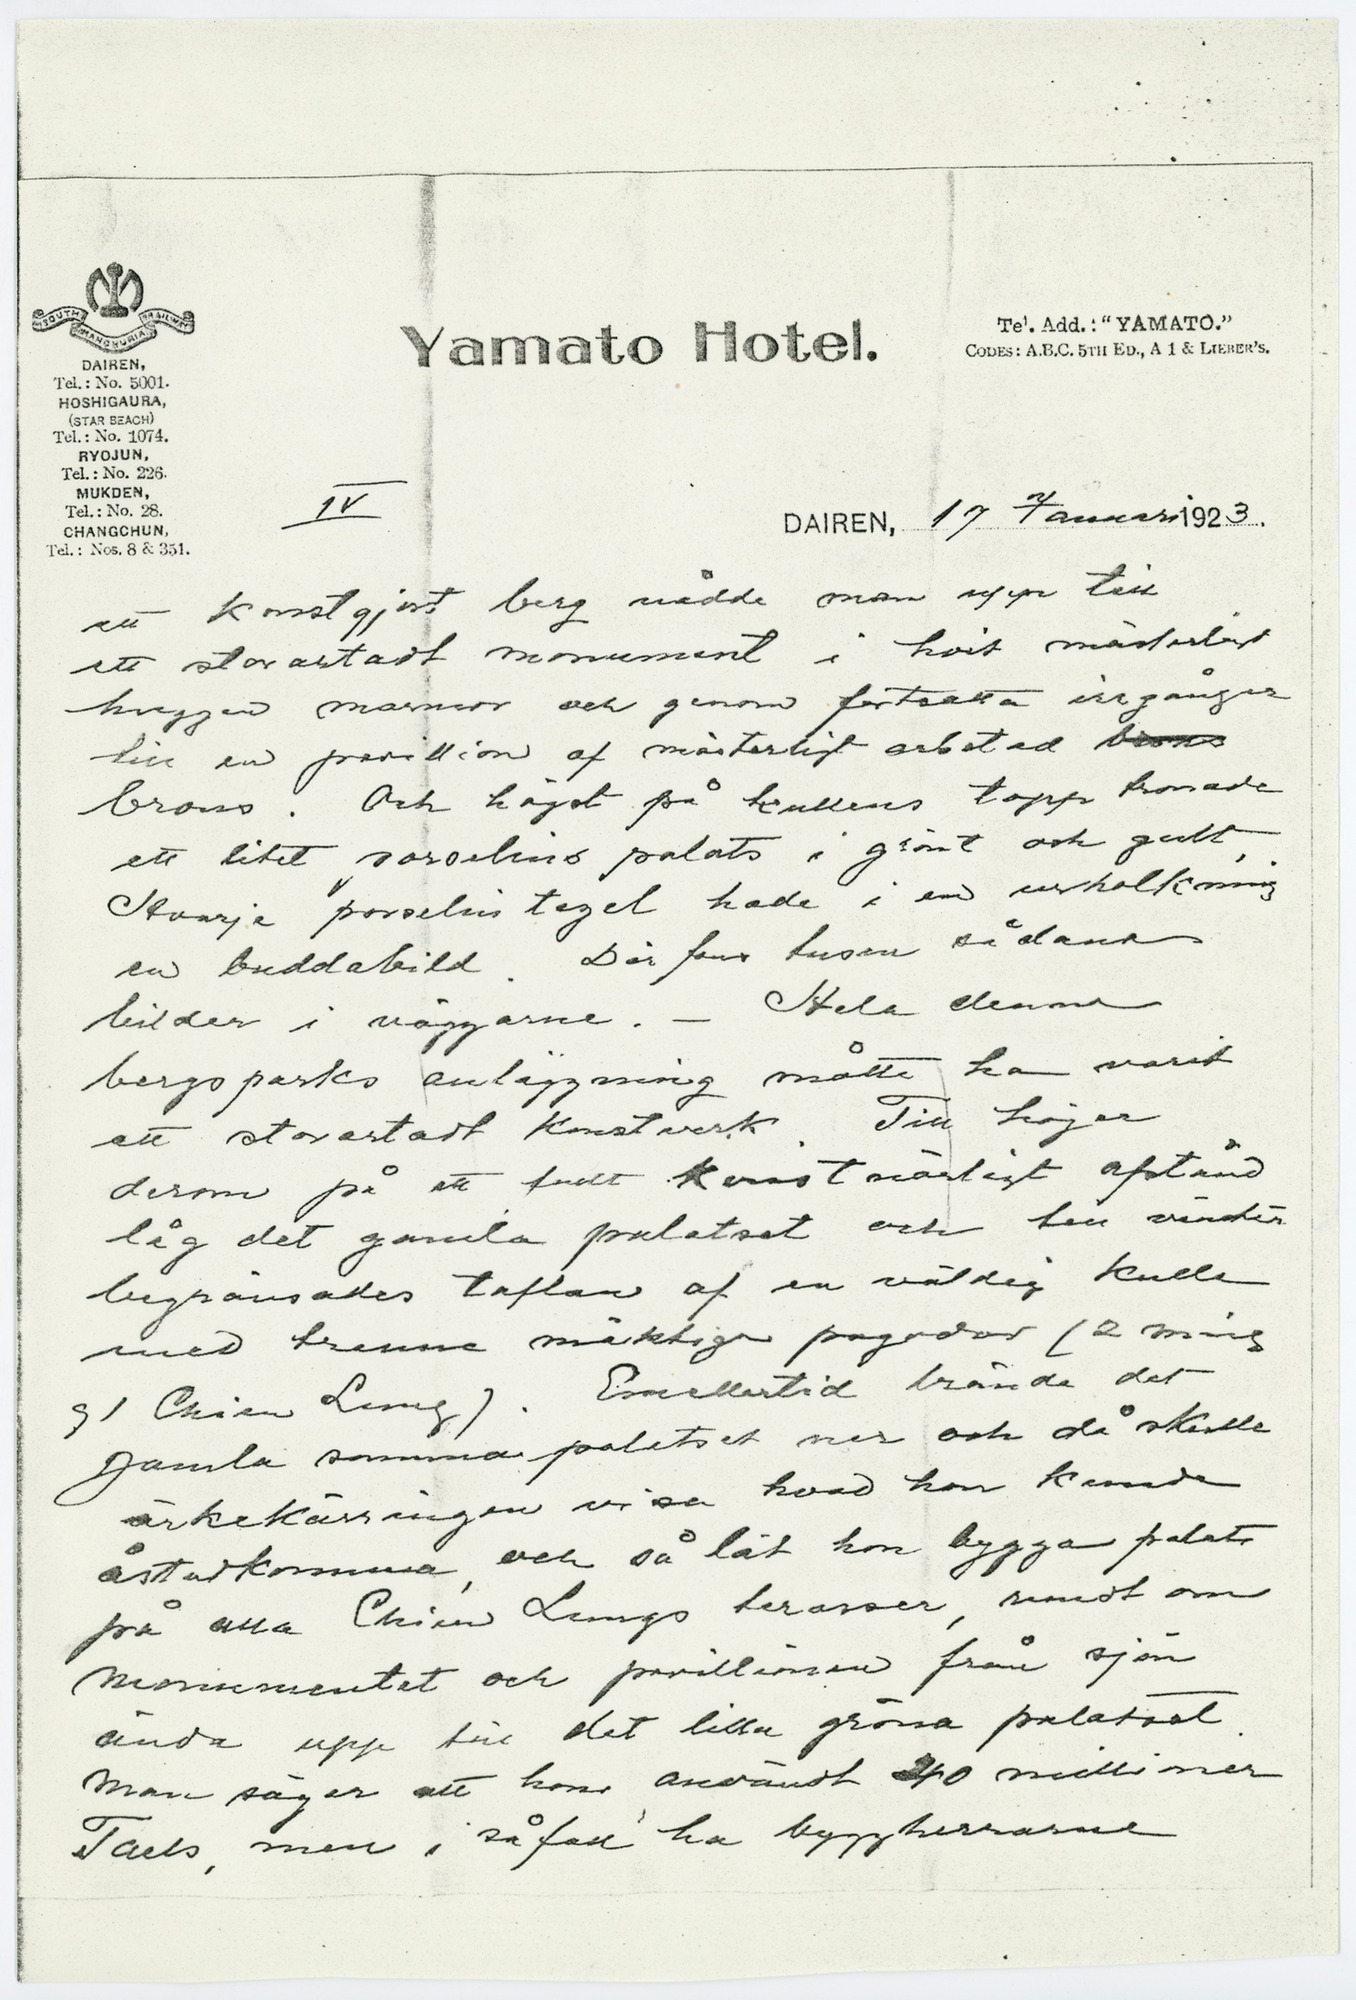 SOUTH MANCHURIA RAILWAY
DAIREN,
Tel.: No. 5001.
HOSHIGAURA,
(STAR BEACH)
Tel.: No. 1074.
RYOJUN,
Tel.: No. 226.
MUKDEN,
Tel.: No. 28.
CHANGCHUN,
Tel.: Nos. 8 & 351.
Yamato Hotel.
Tel. Add.: "YAMATO."
CODES: A.B.C. 5TH ED., A 1 & LIEBER'S.
IV
DAIREN, 17 Januari 1923.
ett konstgjort berg nådde man upp till
ett storartadt monument i hvit mästerligt
huggen marmor och genom fortsatta irrgångar
till en pavillion af mästerligt arbetad brons
brons. Och högst på kullens topp tronade
ett litet porselins palats i grönt och gult,
Hvarje porselins tegel hade i en urholkning
en buddabild. Där fans tusen sådana
bilder i väggarne. – Hela denna
bergsparks anläggning måtte ha varit
ett storartadt konstverk. Till höger
derom på ett fullt konstnärligt afstånd
låg det gamla palatset och till vänster
begränsades taflan af en väldig kulle
med trenne mäktiga pagodor (2 ming
o 1 Chien Lung). Emellertid brände det
gamla sommarpalatset ner och då skulle
ärkekärringen visa hvad hon kunde
åstadkomma, och så lät hon bygga palats
på alla Chien Lungs terasser, rundt om
monumentet och pavillionen från sjön
ända upp till det lilla gröna palatset.
Man säger att hon användt 40 millioner
Taels, men i så fall ha byggherrarne